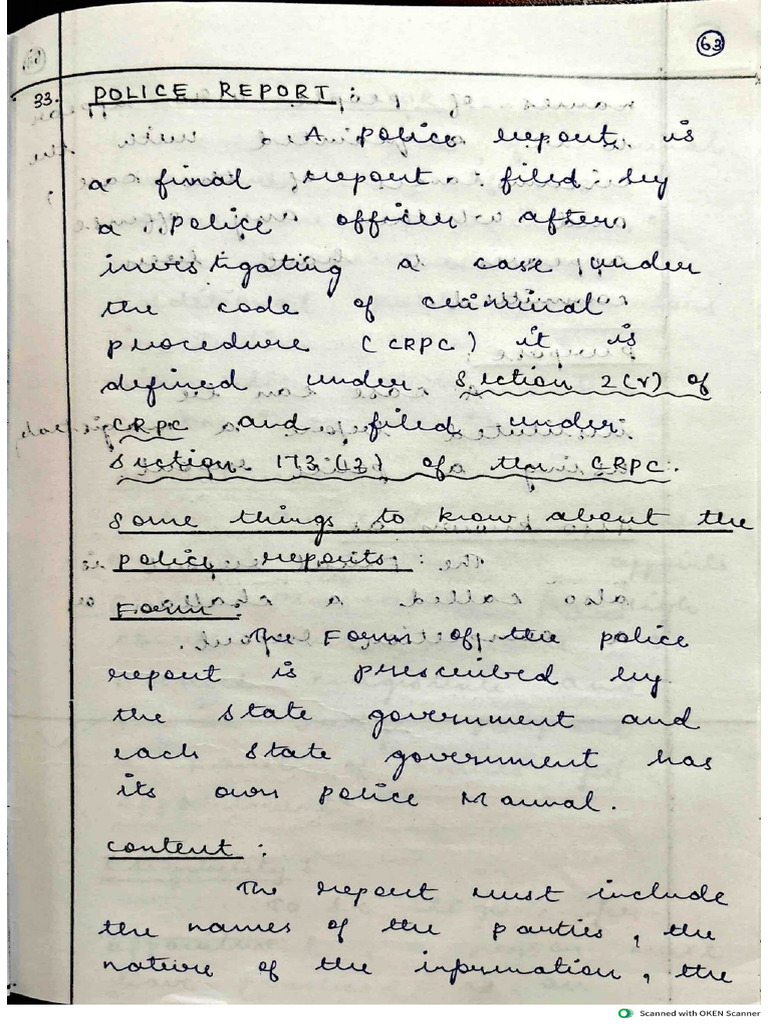 63
33. POLICE REPORT :
A police report is
a final report filed by
a police officer after
investigating a case under
the code of criminal
procedure (CRPC) it is
defined under Section 2(r) of
CRPC and filed under
Section 173(2) of the CRPC.
Some things to know about the
police reports :
Form :
The Form of the police
report is prescribed by
the state government and
each state government has
its own police Manual.
Content :
The report must include
the names of the parties, the
nature of the information, the
Scanned with OKEN Scanner